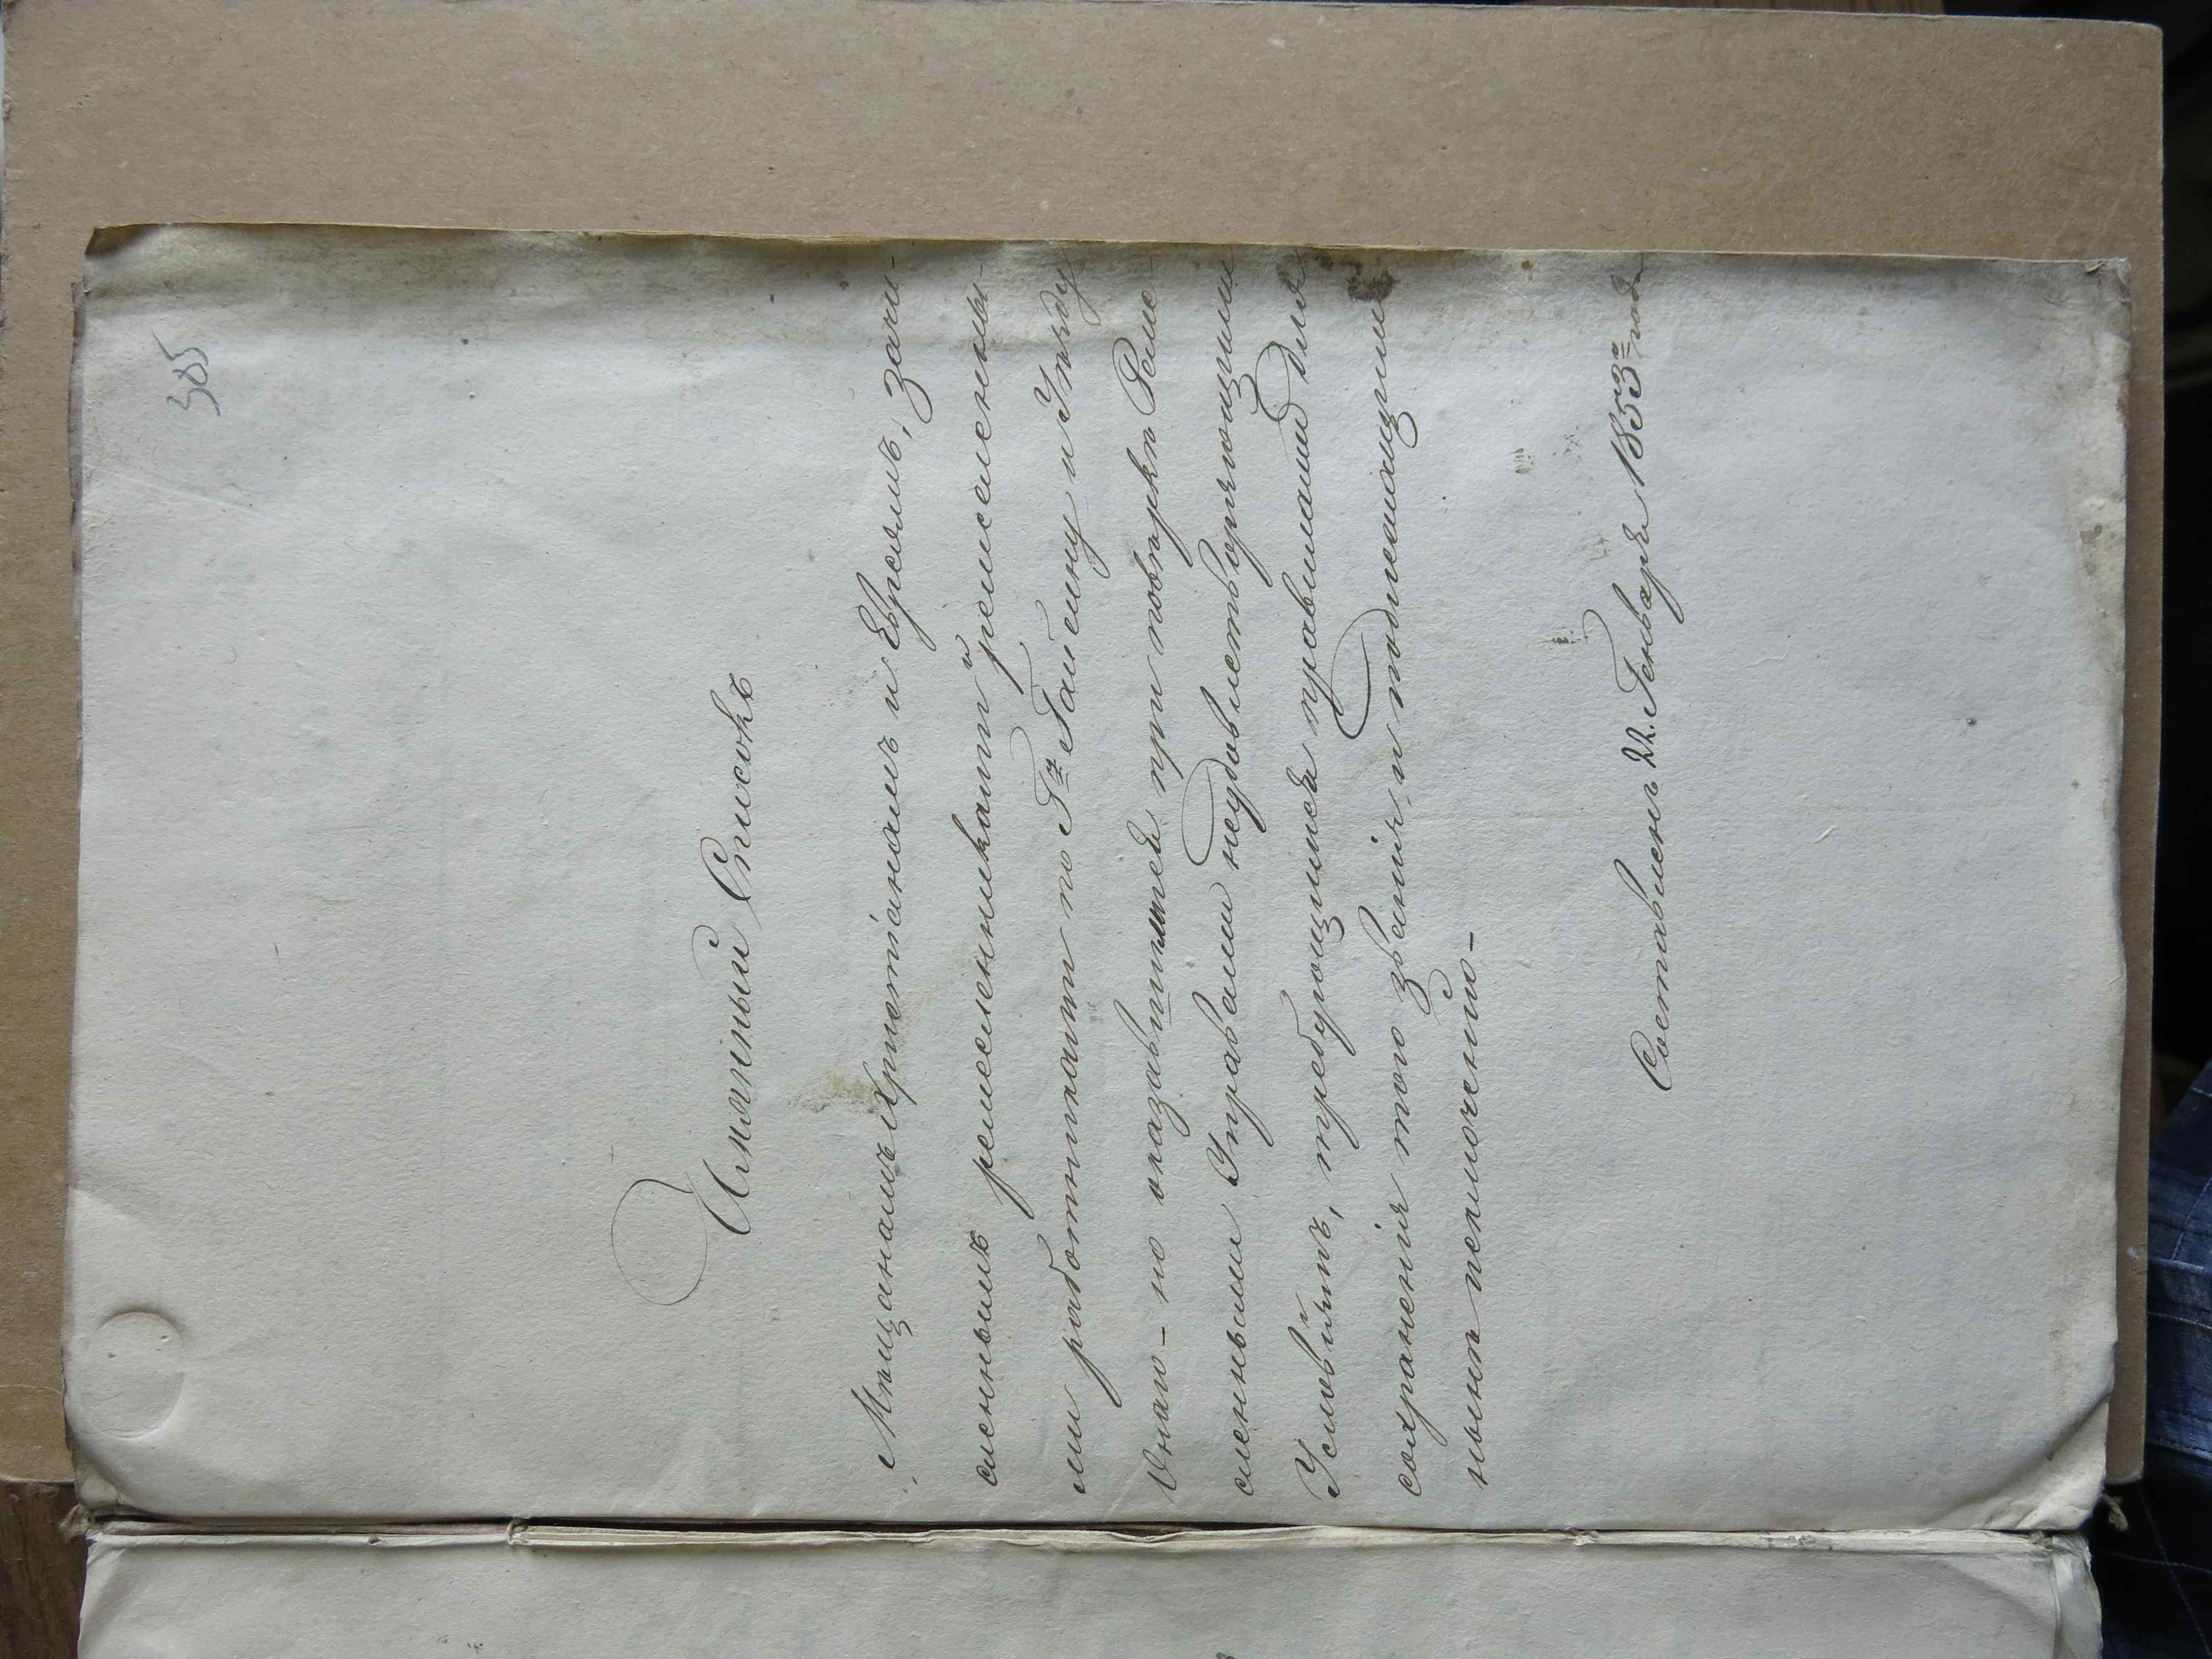 305
Имянный Списокъ
Мѣщанамъ Христіанамъ и Евреямъ, зачи-
сленнымъ ремесленниками и ремесленны-
ми работниками по Гу Гайсину и Уѣзду
Онаго - но оказавшимися при повѣркѣ Реме-
сленными Управами неудовлетворяющими
Условіямъ, требующимся правилами для
сохраненія того званія и подлежащими
нынѣ исключенію -
Составленъ 22. Генваря 1853го года